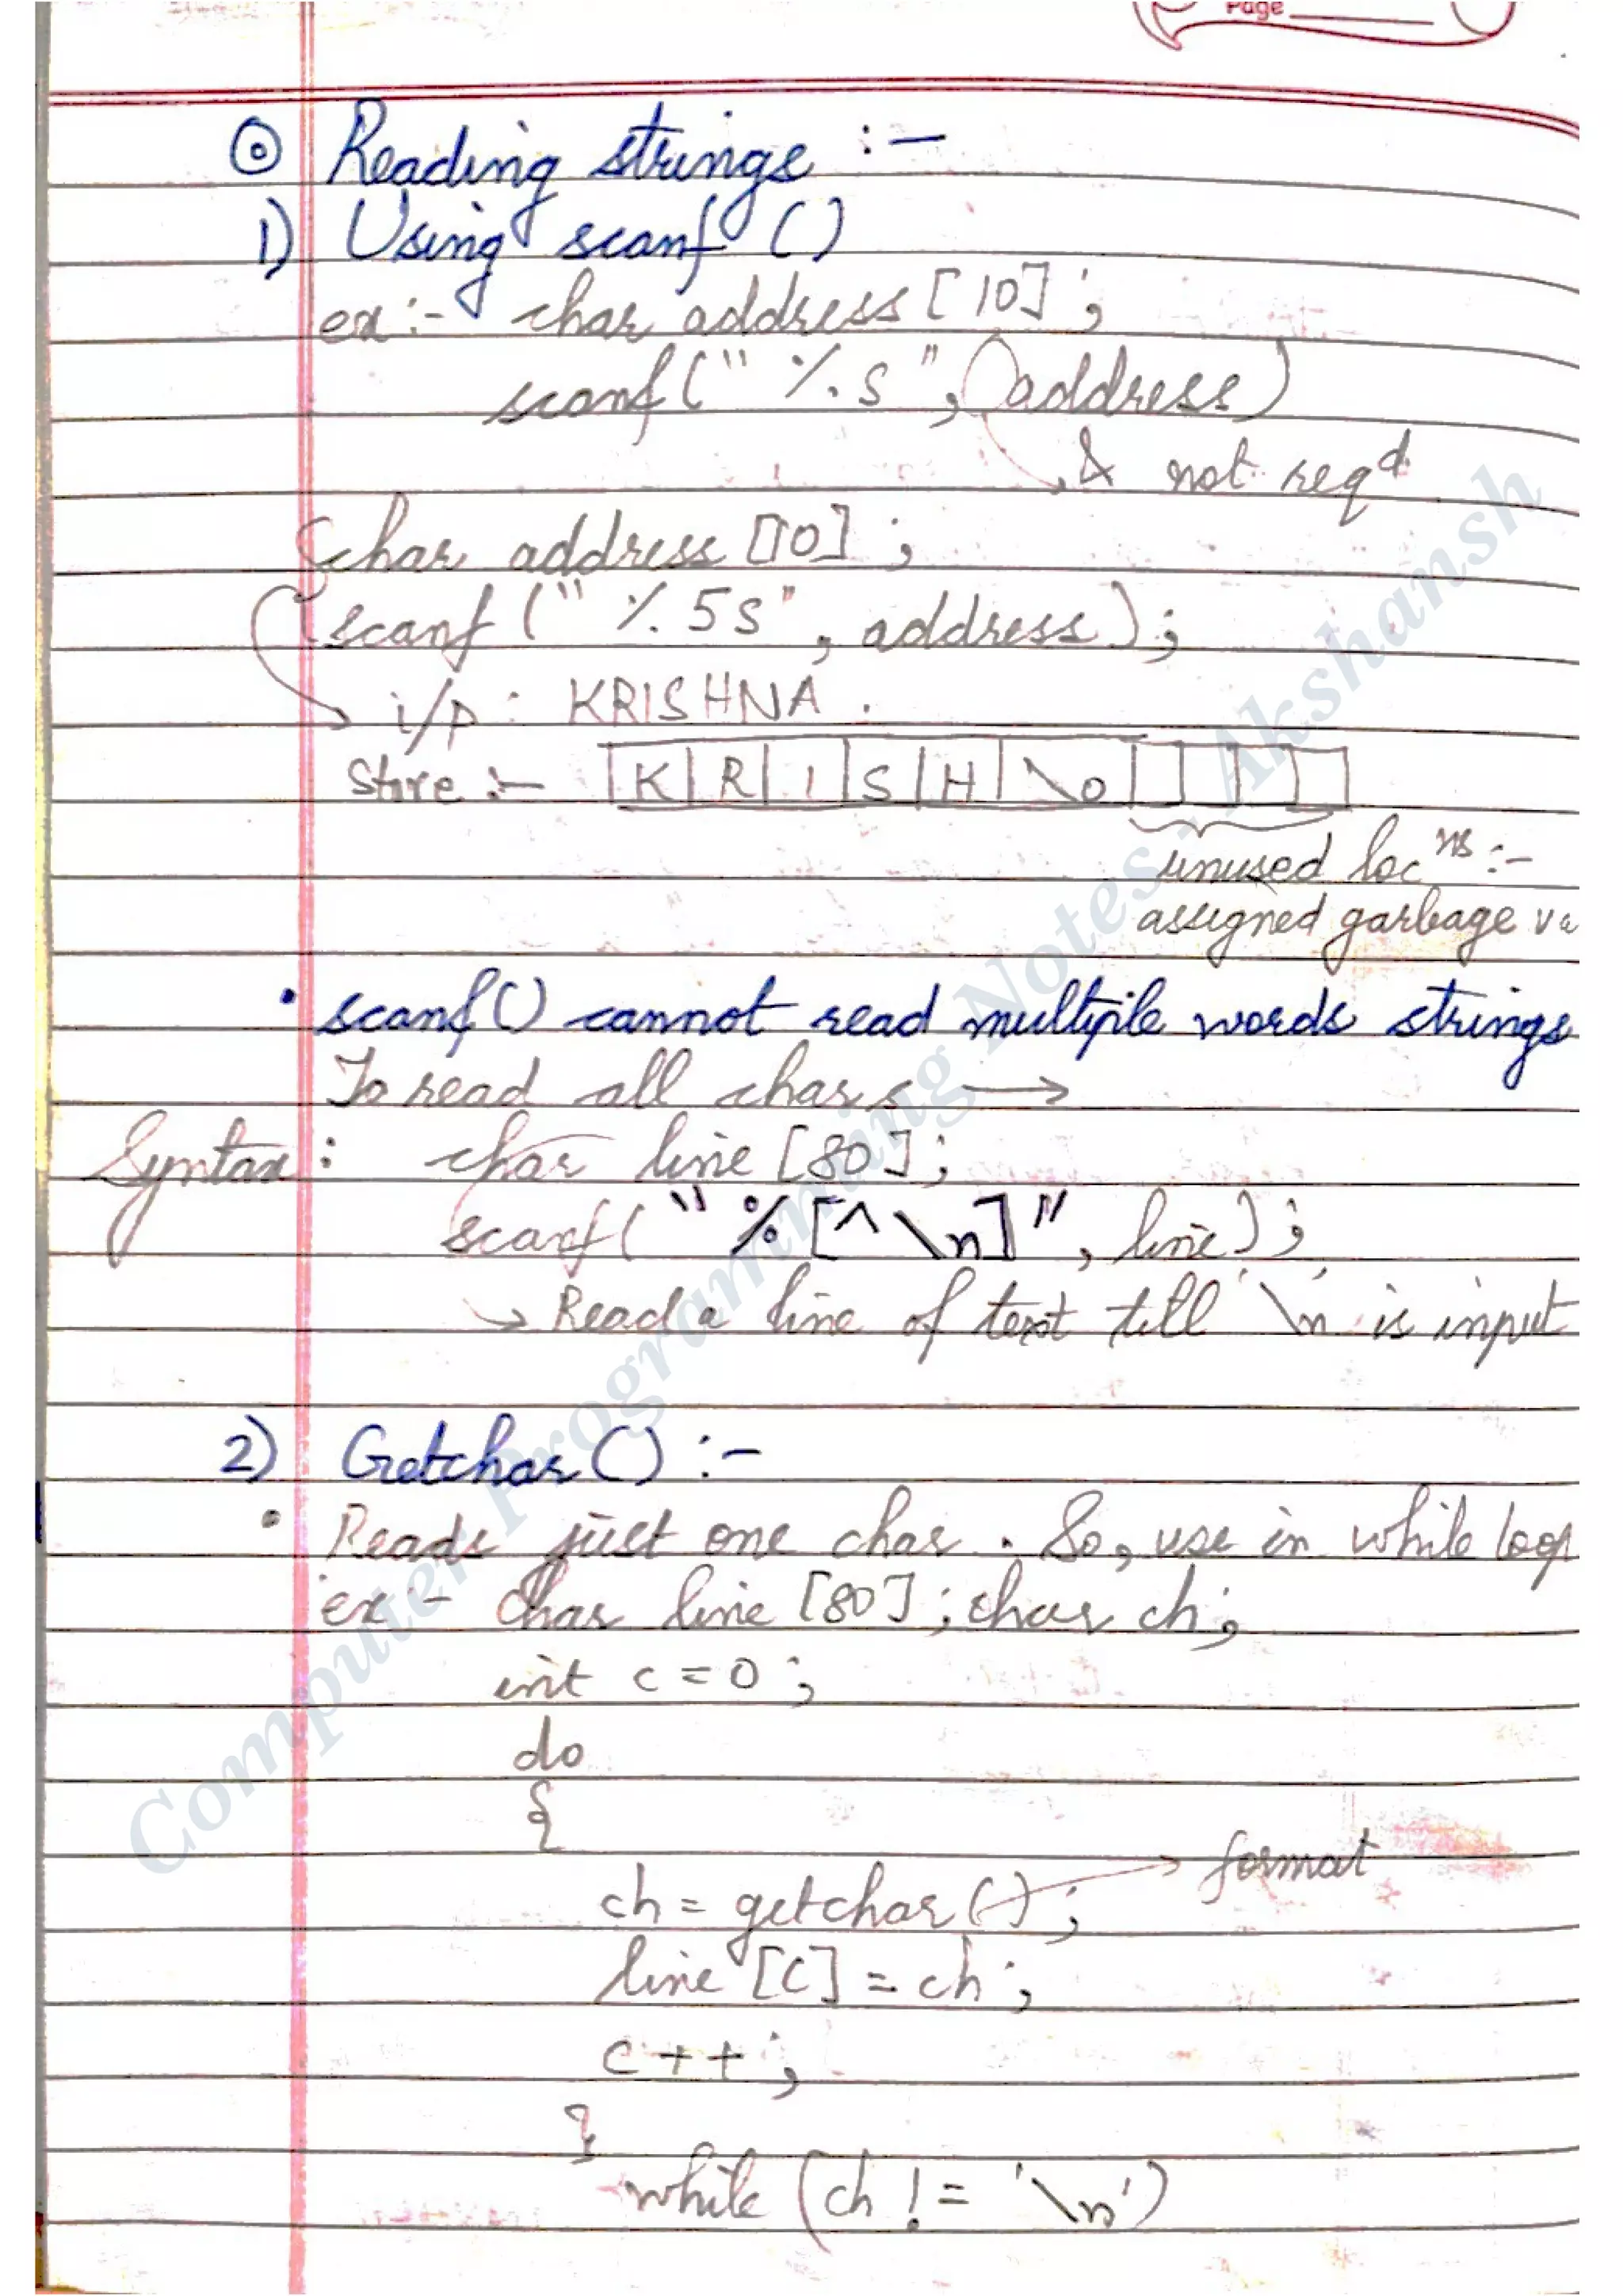 Page
⊙ Reading strings :-
1) Using scanf ()
ex:- char address [10];
scanf(" %s", address)
& not reqd
char address [10] ;
scanf (" %5s", address);
i/p : KRISHNA .
Store :- |K|R|I|S|H|\0| | | | |
unused locns :-
assigned garbage va
• scanf() cannot read multiple words strings
To read all chars →
Syntax : char line [80];
scanf( "%[^\n]", line);
→ Read a line of text till '\n' is input
2) Getchar() :-
• Reads just one char. So, use in while loop
ex - char line [80]; char ch;
int c = 0 ;
do
{
ch = getchar(); → format
line [c] = ch ;
c ++ ;
}
while (ch != '\n')
Computer Programming Notes - Akshansh